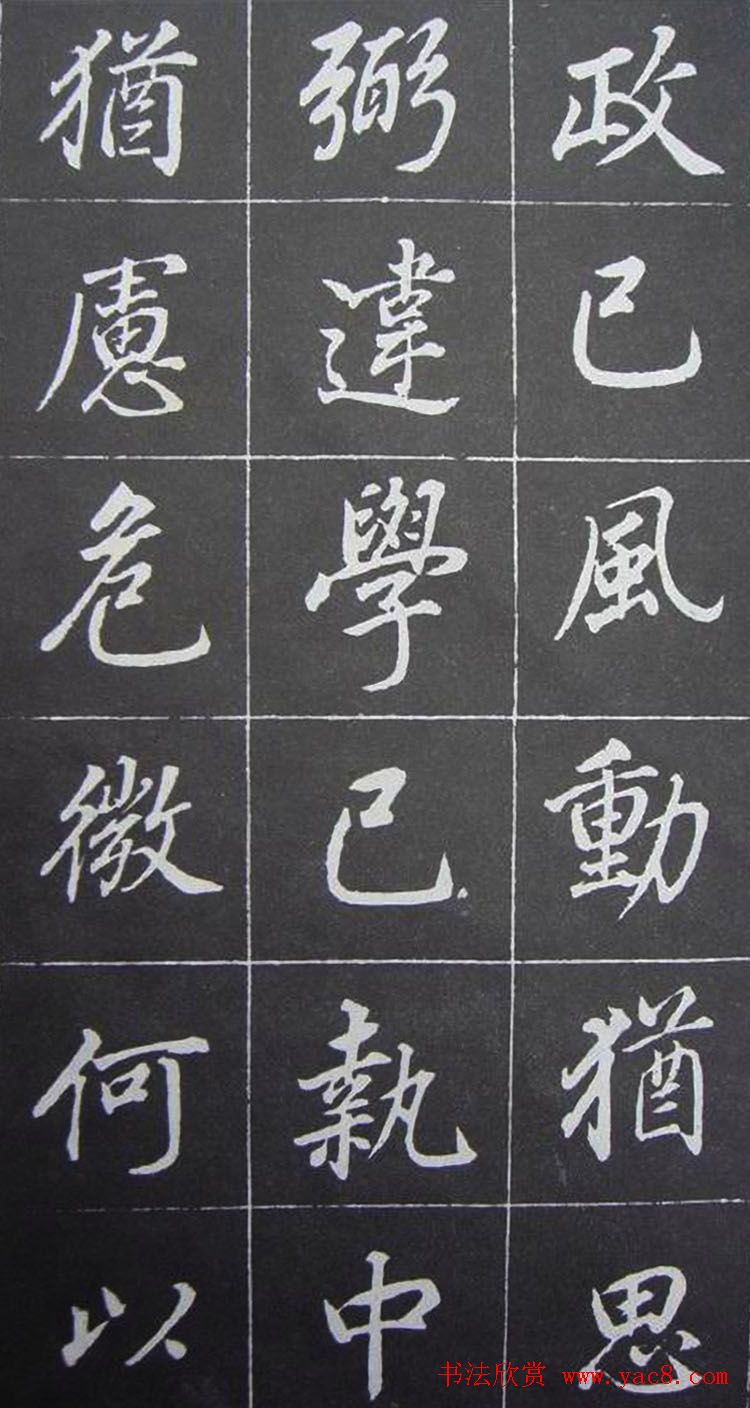 政已風動猶思
弼違學已執中
猶慮危微何以
书法欣赏 www.yac8.com